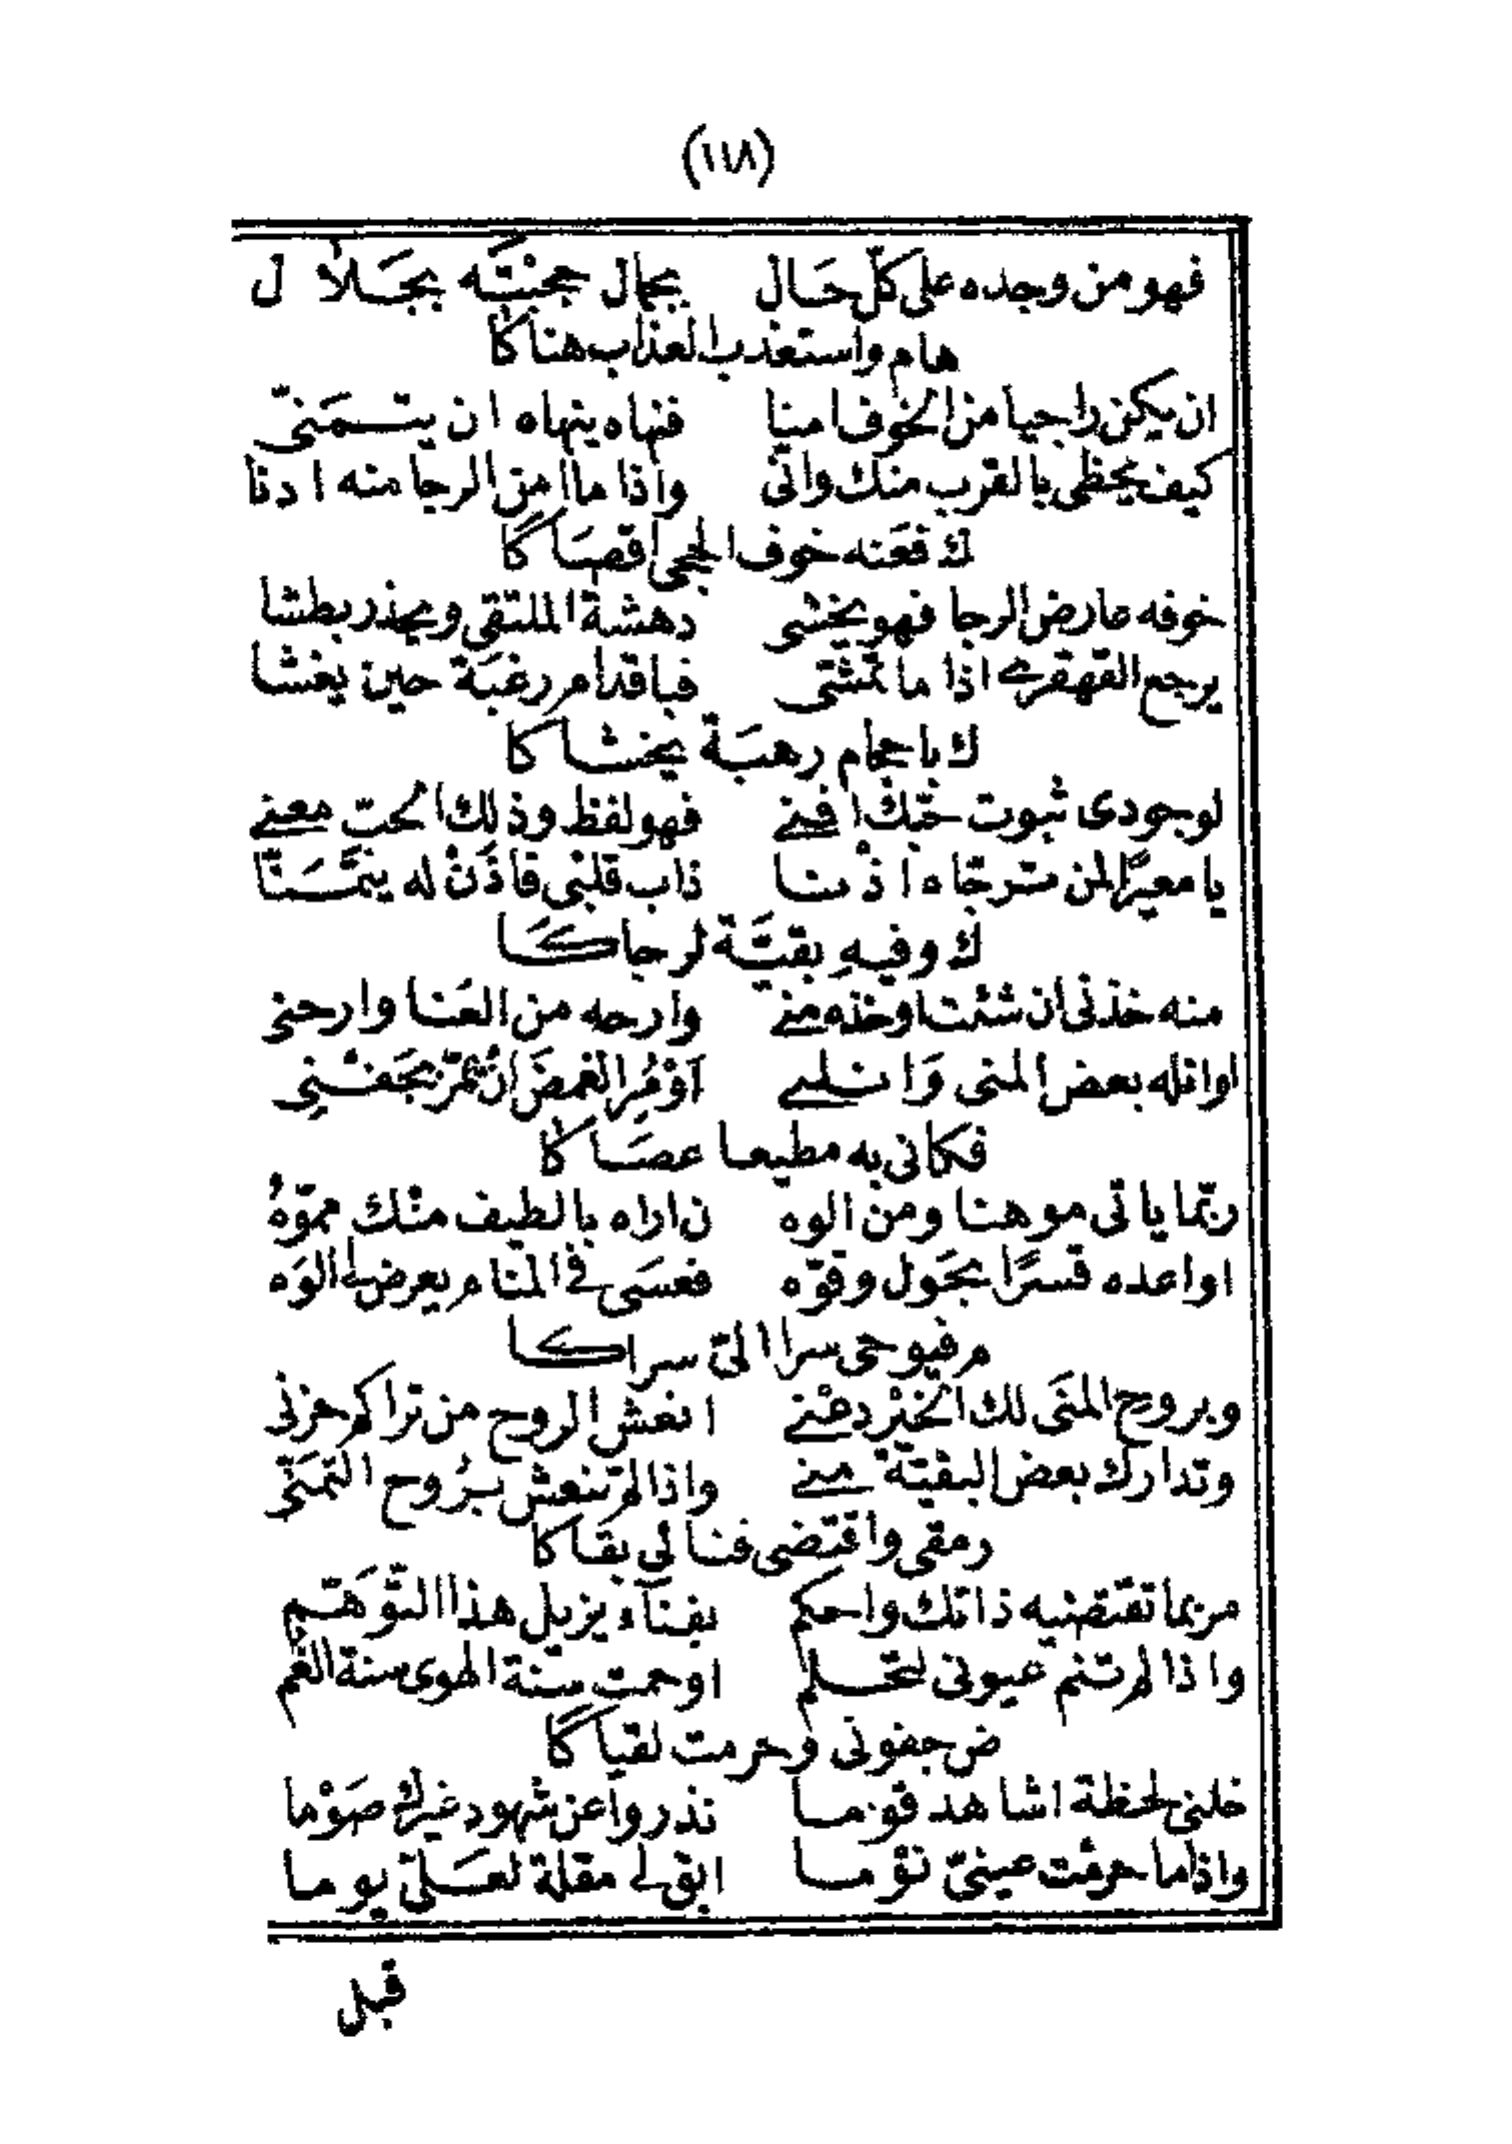 (١١٨)
فهو من وجده على كلّ حَال بجمال حجبْتَه بجَلاٰل
هام واستعذب العذاب هناكا
ان يكن راجيا من الخوف امنا فنهاه ينهاه ان يتمَنىّ
كيف يحظى بالقرب منك وانّى واذا ما امن الرجا منه ادنا
ك فعَنه خوف الحجى اقصَاكا
خوفه عارض الرجا فهو يخشى دهشة الملتقى ويحذر بطشا
يرجع القهقرے اذا ما تمشّى فباقدام رغبَة حين يغشا
ك باحجام رهبَة يخشاكا
لوجودى ثبوت حبّك افنے فهو لفظ وذلك الحبّ معنے
يا معيرًا لمن ترجّاه اذنا ذاب قلبْى فأذَنْ له يتمَّنَّا
ك وفيهِ بقيَّة لرجاكَا
منه خذنى ان شئت او خذه منے وارحه من العَنا وارحنى
او انله بعض المنى وَانلنے آوْ مُرِ الغمضَ انْ يمُرّ بجَفْنِى
فكانى به مطيعا عصَاكا
ربّما ياتى موهنا ومن الوه ن اراه بالطيف منْك مموّهُ
او اعده قسرًا بحَول وقوّه فعسَى فى المنام يعرض لى الوَه
م فيوحى سرا الىّ سراكا
وبروح المنَى لك الخيْر دعْنے انعش الروح من تراكم حزنى
وتدارك بعض البقيّة منے واذا لم تنعش برُوح التمَنّى
رمقى واقتضى فنائى بقاكا
مر بما تقتضيه ذاتك واحكم بفنآء يزيل هذا التّوَهّم
واذا لم تنم عيونى لتحلم او حمت سنّة الهوى سنة الغم
ض جفونى وحرمت لقياكا
خلنى لحظة اشاهد قوما نذروا عن شهود غيرك صَوْما
واذا ما حرمْت عينىّ نوْما ابق لى مقلة لعَلىّ يوما
قبل